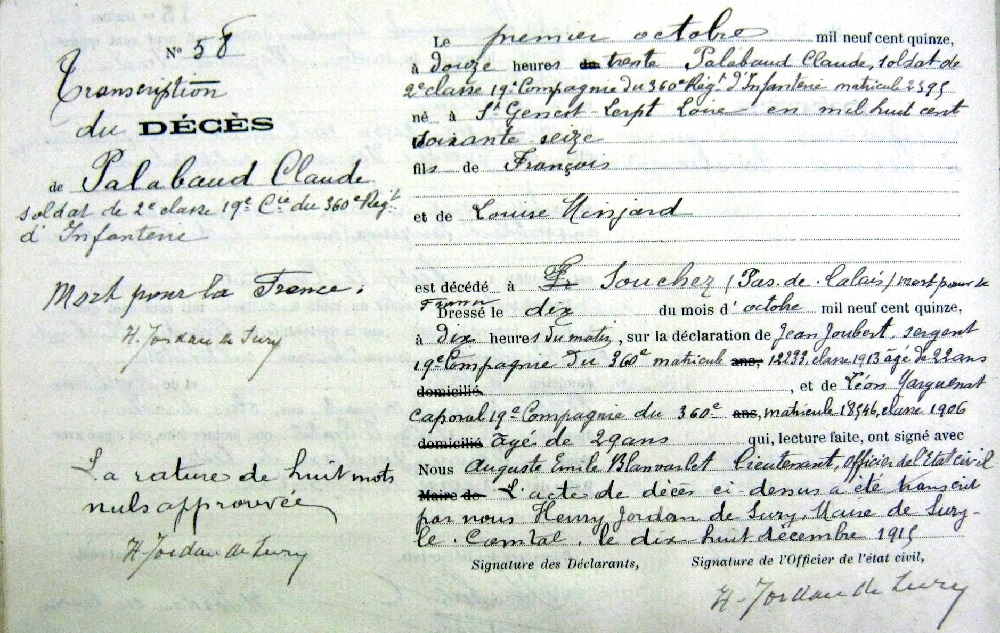 N° 58
Transcription
du DÉCÈS
de Palabaud Claude
soldat de 2e classe 19e Cie du 360e Régt
d'Infanterie
Mort pour la France.
H. Jordan de Sury
La rature de huit mots
nuls approuvée
H. Jordan de Sury
Le premier octobre mil neuf cent quinze,
à douze heures du trente Palabaud Claude, soldat de
2e classe 19e Compagnie du 360e Régt d'Infanterie matricule 2395
né à St Genest-Lerpt Loire en mil huit cent
soixante seize
fils de François
et de Louise
est décédé à Souchez (Pas-de-Calais) mort pour la
France
Dressé le dix du mois d'octobre mil neuf cent quinze,
à dix heures du matin, sur la déclaration de Jean Joubert, sergent
19e Compagnie du 360e matricule ans, 12233, classe 1913 âgé de 22 ans
domicilié , et de Léon
caporal 19e Compagnie du 360e ans, matricule 18546, classe 1906
domicilié âgé de 29 ans qui, lecture faite, ont signé avec
Nous Auguste Emile Lieutenant, Officier de l'Etat civil
Maire de L'acte de décès ci-dessus a été transcrit
par nous Henry Jordan de Sury, Maire de Sury-
le-Comtal, le dix huit décembre 1915
Signature des Déclarants, Signature de l'Officier de l'état civil,
H. Jordan de Sury